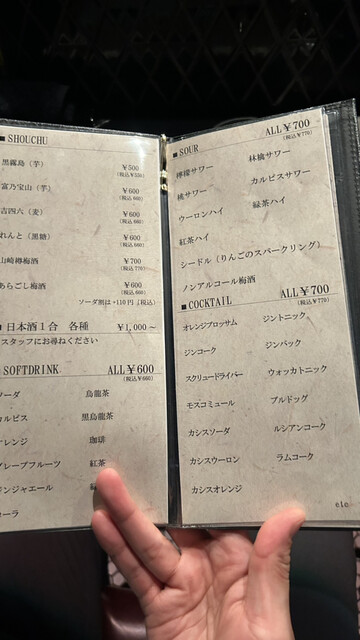 ■ SHOUCHU
黒霧島（芋）　¥500
(税込¥550)
富乃宝山（芋）　¥600
(税込 660)
吉四六（麦）　¥600
(税込 660)
れんと（黒糖）　¥600
(税込 660)
山崎樽梅酒　¥700
(税込 770)
あらごし梅酒　¥600
(税込 660)
ソーダ割は+110円（税込）
日本酒１合　各種　¥1,000～
スタッフにお尋ねください
SOFTDRINK　ALL¥600
(税込¥660)
ソーダ　烏龍茶
カルピス　黒烏龍茶
オレンジ　珈琲
グレープフルーツ　紅茶
ジンジャエール
コーラ
■ SOUR　ALL¥700
(税込¥770)
檸檬サワー　林檎サワー
桃サワー　カルピスサワー
ウーロンハイ　緑茶ハイ
紅茶ハイ
シードル（りんごのスパークリング）
ノンアルコール梅酒
■ COCKTAIL　ALL¥700
(税込¥770)
オレンジブロッサム　ジントニック
ジンコーク　ジンバック
スクリュードライバー　ウォッカトニック
モスコミュール　ブルドッグ
カシスソーダ　ルシアンコーク
カシスウーロン　ラムコーク
カシスオレンジ
etc